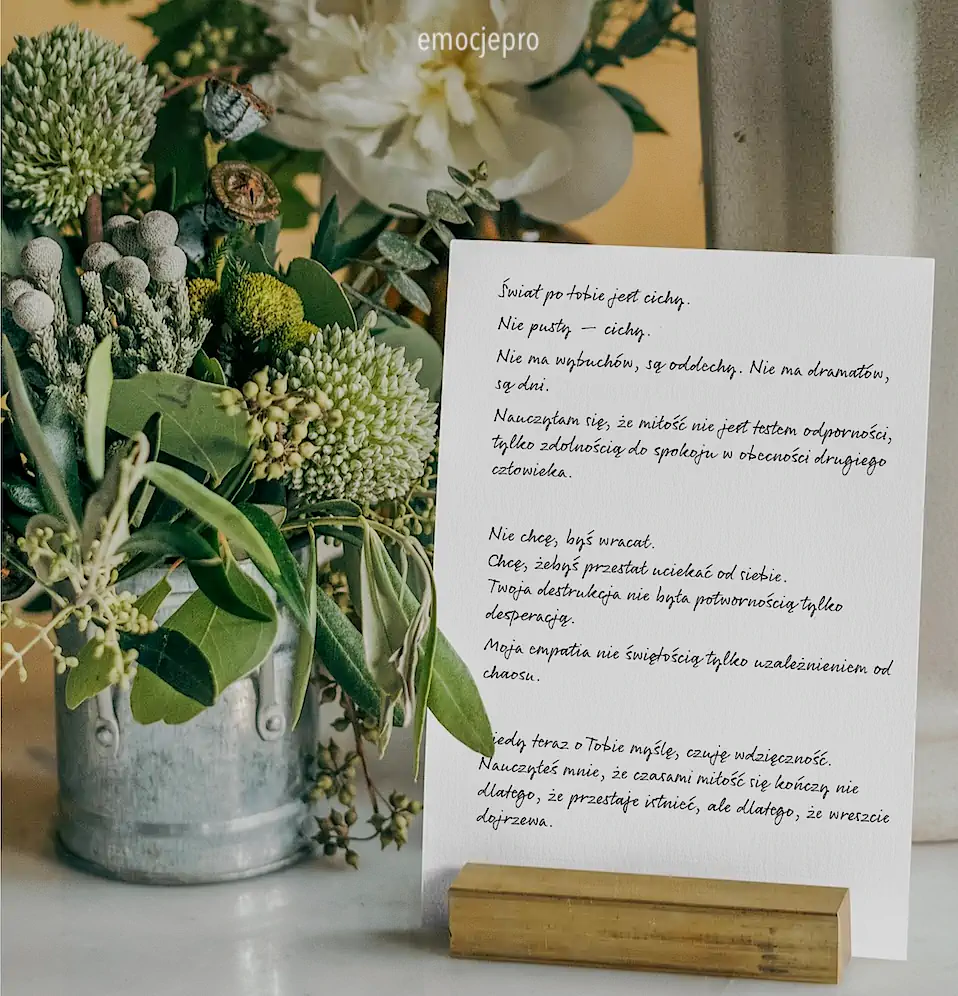 emocjepro
Świat po tobie jest cichy.
Nie pusty — cichy.
Nie ma wybuchów, są oddechy. Nie ma dramatów,
są dni.
Nauczyłam się, że miłość nie jest testem odporności,
tylko zdolnością do spokoju w obecności drugiego
człowieka.
Nie chcę, byś wracał.
Chcę, żebyś przestał uciekać od siebie.
Twoja destrukcja nie była potwornością tylko
desperacją.
Moja empatia nie świętością tylko uzależnieniem od
chaosu.
iedy teraz o Tobie myślę, czuję wdzięczność.
Nauczyłeś mnie, że czasami miłość się kończy nie
dlatego, że przestaje istnieć, ale dlatego, że wreszcie
dojrzewa.